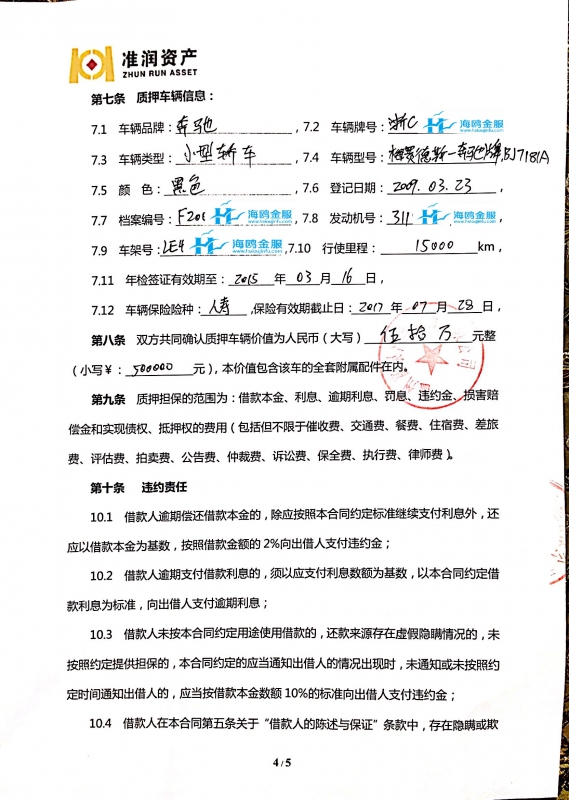 准润资产
ZHUN RUN ASSET
第七条 质押车辆信息：
7.1 车辆品牌：奔驰，7.2 车辆牌号：浙C 海鸥金服 www.haiоujinfu.com
7.3 车辆类型：小型轿车，7.4 车辆型号：梅赛德斯—奔驰牌BJ7181A
7.5 颜 色：黑色 7.6 登记日期：2009.03.23，
7.7 档案编号：F200 海鸥金服，7.8 发动机号：311 海鸥金服，
7.9 车架号：LE4 海鸥金服，7.10 行使里程：15000 km，
7.11 年检签证有效期至：2015 年 03 月 16 日，
7.12 车辆保险险种：人寿，保险有效期截止日：2017 年 07 月 28 日，
第八条 双方共同确认质押车辆价值为人民币（大写）伍拾万 元整
（小写￥：500000 元），本价值包含该车的全套附属配件在内。
第九条 质押担保的范围为：借款本金、利息、逾期利息、罚息、违约金、损害赔
偿金和实现债权、抵押权的费用（包括但不限于催收费、交通费、餐费、住宿费、差旅
费、评估费、拍卖费、公告费、仲裁费、诉讼费、保全费、执行费、律师费）。
第十条 违约责任
10.1 借款人逾期偿还借款本金的，除应按照本合同约定标准继续支付利息外，还
应以借款本金为基数，按照借款金额的2%向出借人支付违约金；
10.2 借款人逾期支付借款利息的，须以应支付利息数额为基数，以本合同约定借
款利息为标准，向出借人支付逾期利息；
10.3 借款人未按本合同约定用途使用借款的，还款来源存在虚假隐瞒情况的，未
按照约定提供担保的，本合同约定的应当通知出借人的情况出现时，未通知或未按照约
定时间通知出借人的，应当按借款本金数额10%的标准向出借人支付违约金；
10.4 借款人在本合同第五条关于“借款人的陈述与保证”条款中，存在隐瞒或欺
4/5